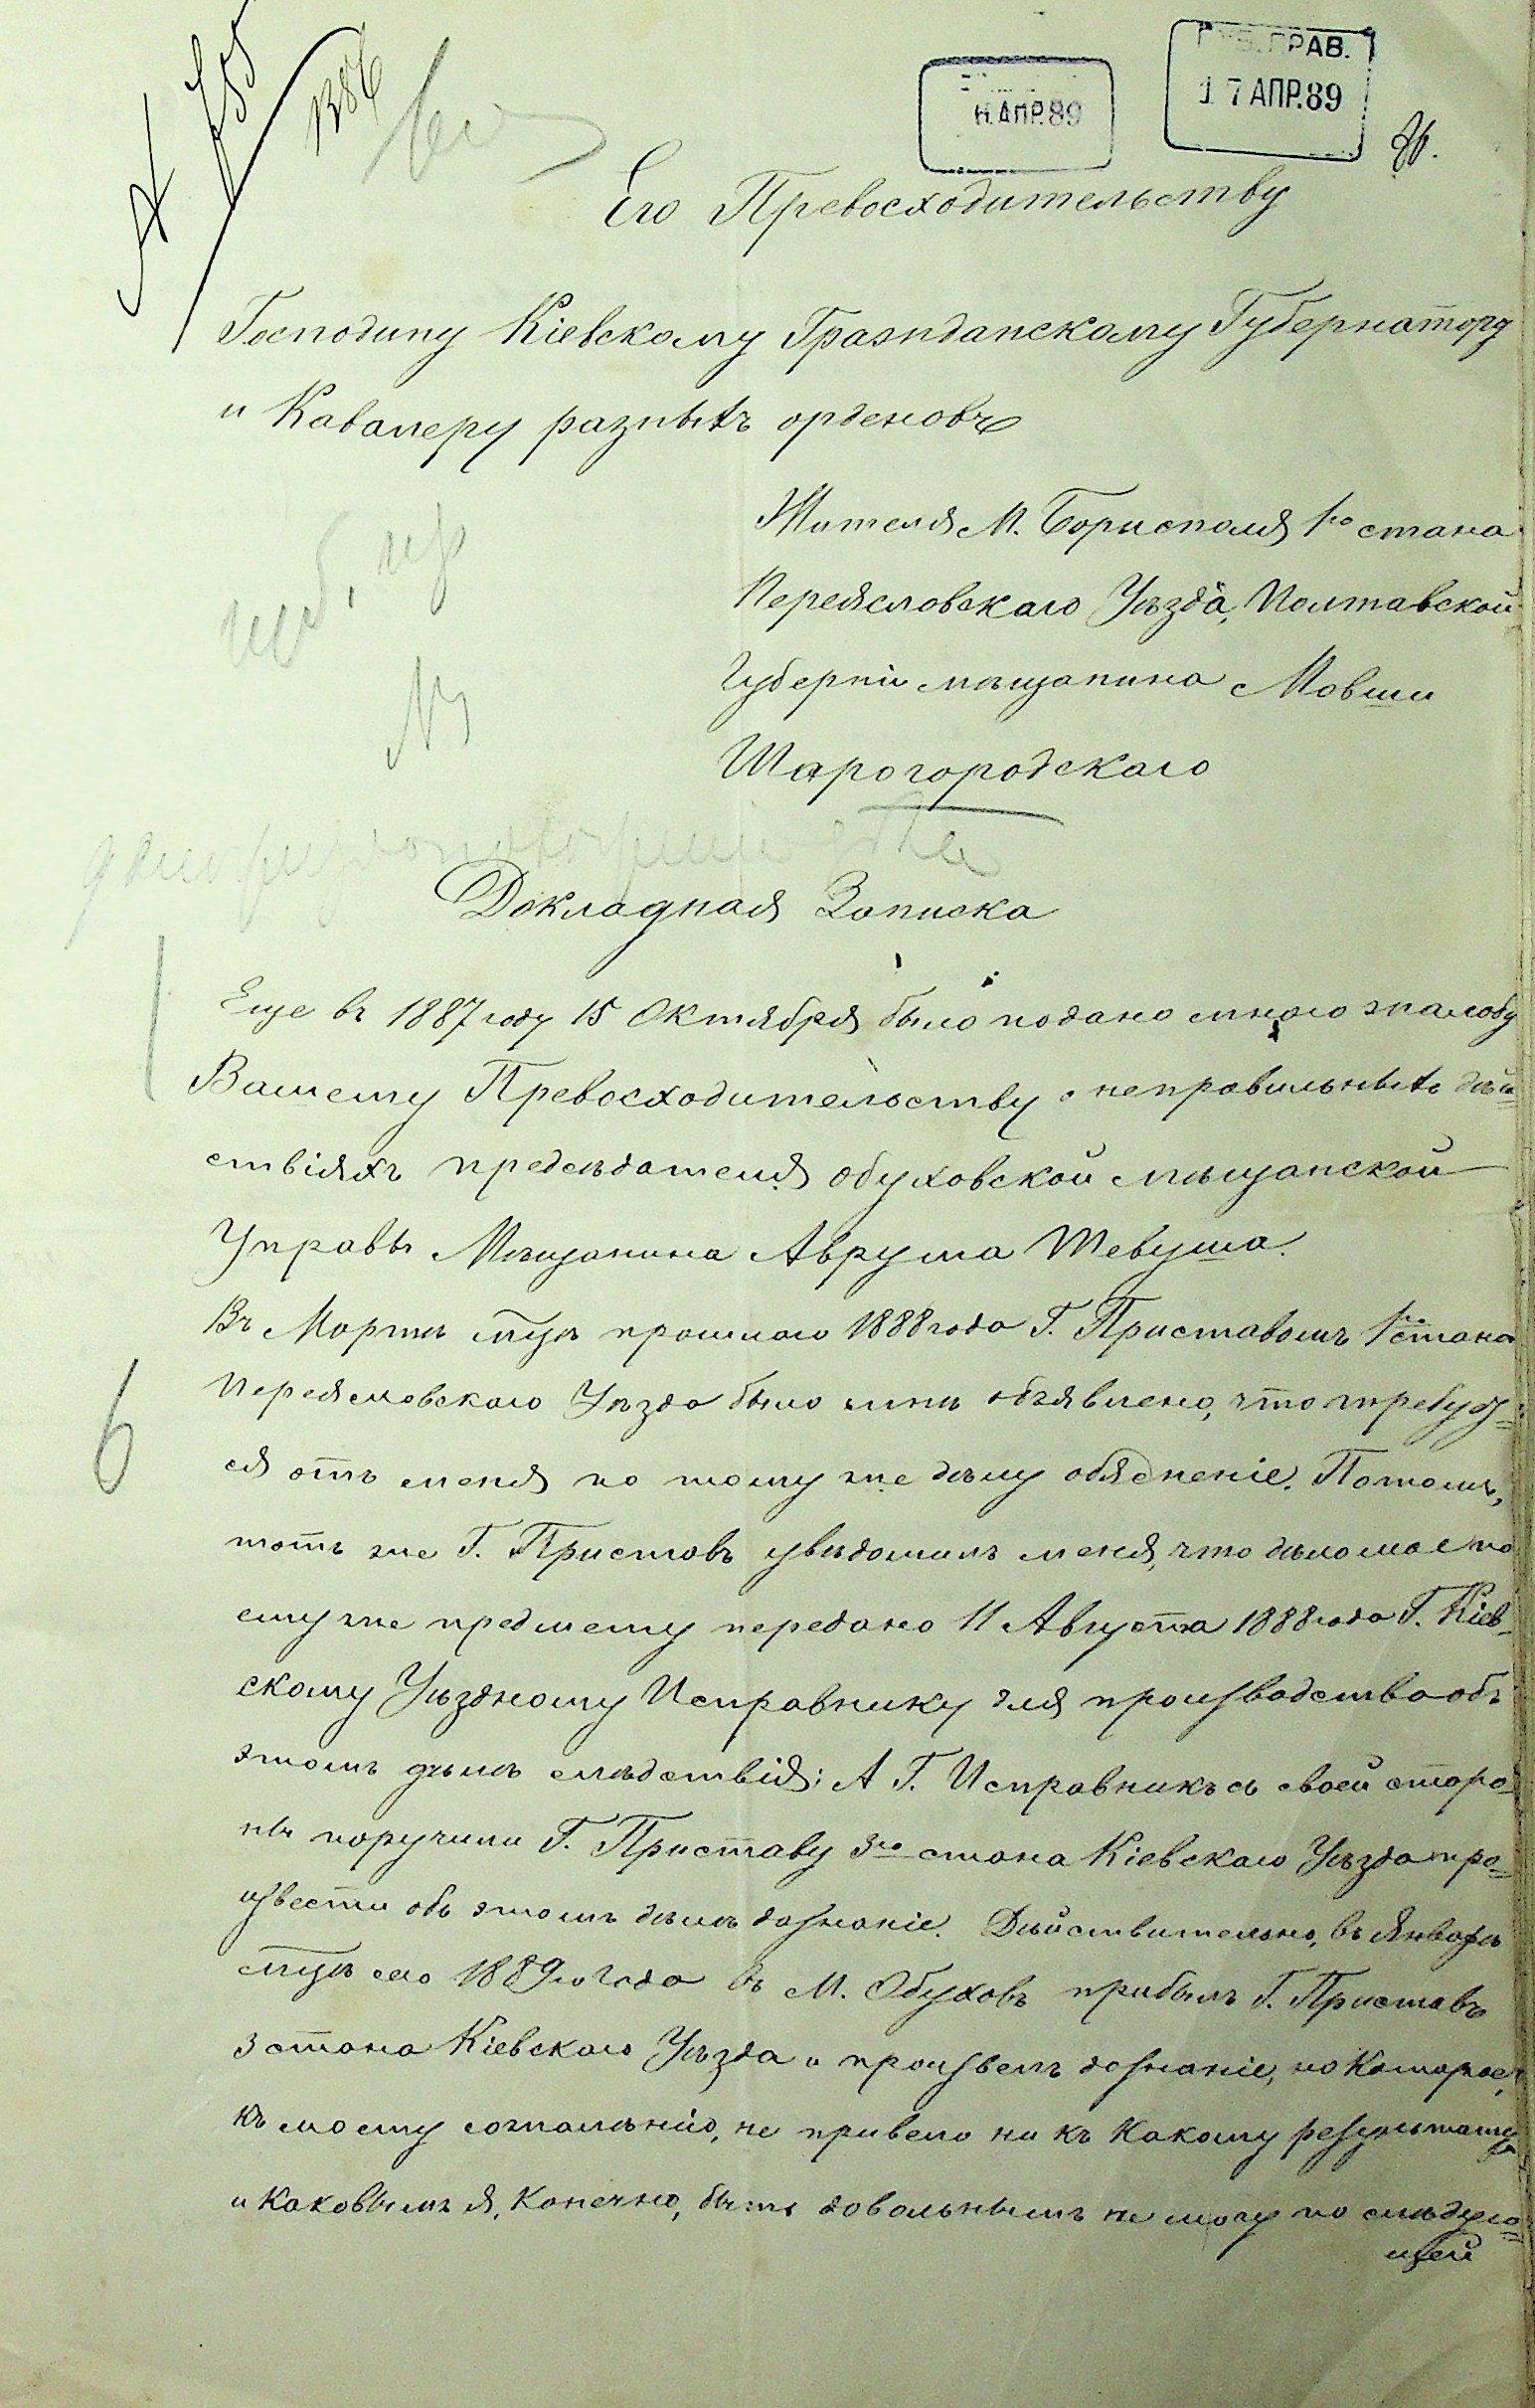 ГУБ. ПРАВ.
17 АПР. 89
АПР. 89
Его Превосходительству
Господину Кіевскому Гражданскому Губернатору
и Кавалеру разныхъ орденовъ
Жителя М. Борисполя 1го стана
Переясловскаго Уѣзда, Полтавской
Губерніи мѣщанина Мовши
Шарогородскаго
Докладная Записка
Еще въ 1887 году 15 Октября было подано мною жалобу
Вашему Превосходительству о неправильныхъ дѣй=
ствіяхъ предсѣдателя обуховской мѣщанской
Управы Мѣщанина Аврума Шевуша.
Въ Мартѣ м-цѣ прошлаго 1888 года Г. Приставомъ 1го стана
Переясловскаго Уѣзда было мнѣ объявлено, что требует=
ся отъ меня по тому же дѣлу обясненіе. Потомъ,
тотъ же Г. Приставъ увѣдомилъ меня, что дѣло мое по
сему же предмету передано 11 Августа 1888 года Г. Кіев-
скому Уѣздному Исправнику для производства объ
этомъ дѣлѣ слѣдствія; А Г. Исправникъ съ своей сторо-
ны поручили Г. Приставу 3го стана Кіевскаго Уѣзда про=
извести объ этомъ дѣлѣ дознаніе. Дѣйствительно, въ Январѣ
м-цѣ сего 1889го года въ М. Обуховъ прибылъ Г. Приставъ
3 стана Кіевскаго Уѣзда и произвелъ дознаніе, но которое,
къ моему сожалѣнію, не привело ни къ какому результату
и каковымъ я, конечно, быть довольнымъ не могу по слѣдую=
щей